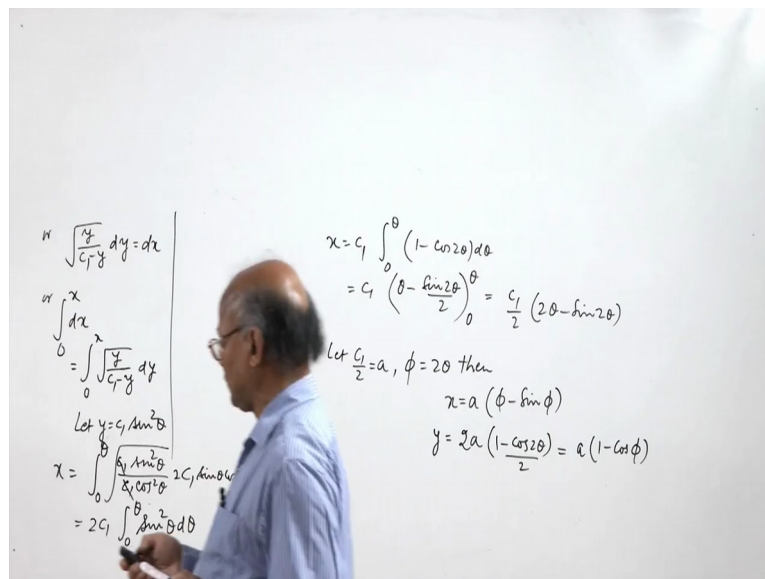 or √(y/(c₁-y)) dy = dx
or ∫₀ˣ dx
= ∫₀ˣ √(y/(c₁-y)) dy
Let y = c₁ sin²θ
x = ∫₀^θ √(c₁ sin²θ/(c₁ cos²θ)) 2c₁ sinθ
= 2c₁ ∫₀^θ sin²θ dθ
x = c₁ ∫₀^θ (1 - cos2θ) dθ
= c₁ (θ - sin2θ/2)₀^θ = c₁/2 (2θ - sin2θ)
Let c₁/2 = a, ϕ = 2θ then
x = a (ϕ - sinϕ)
y = 2a (1 - cos2θ)/2 = a (1 - cosϕ)